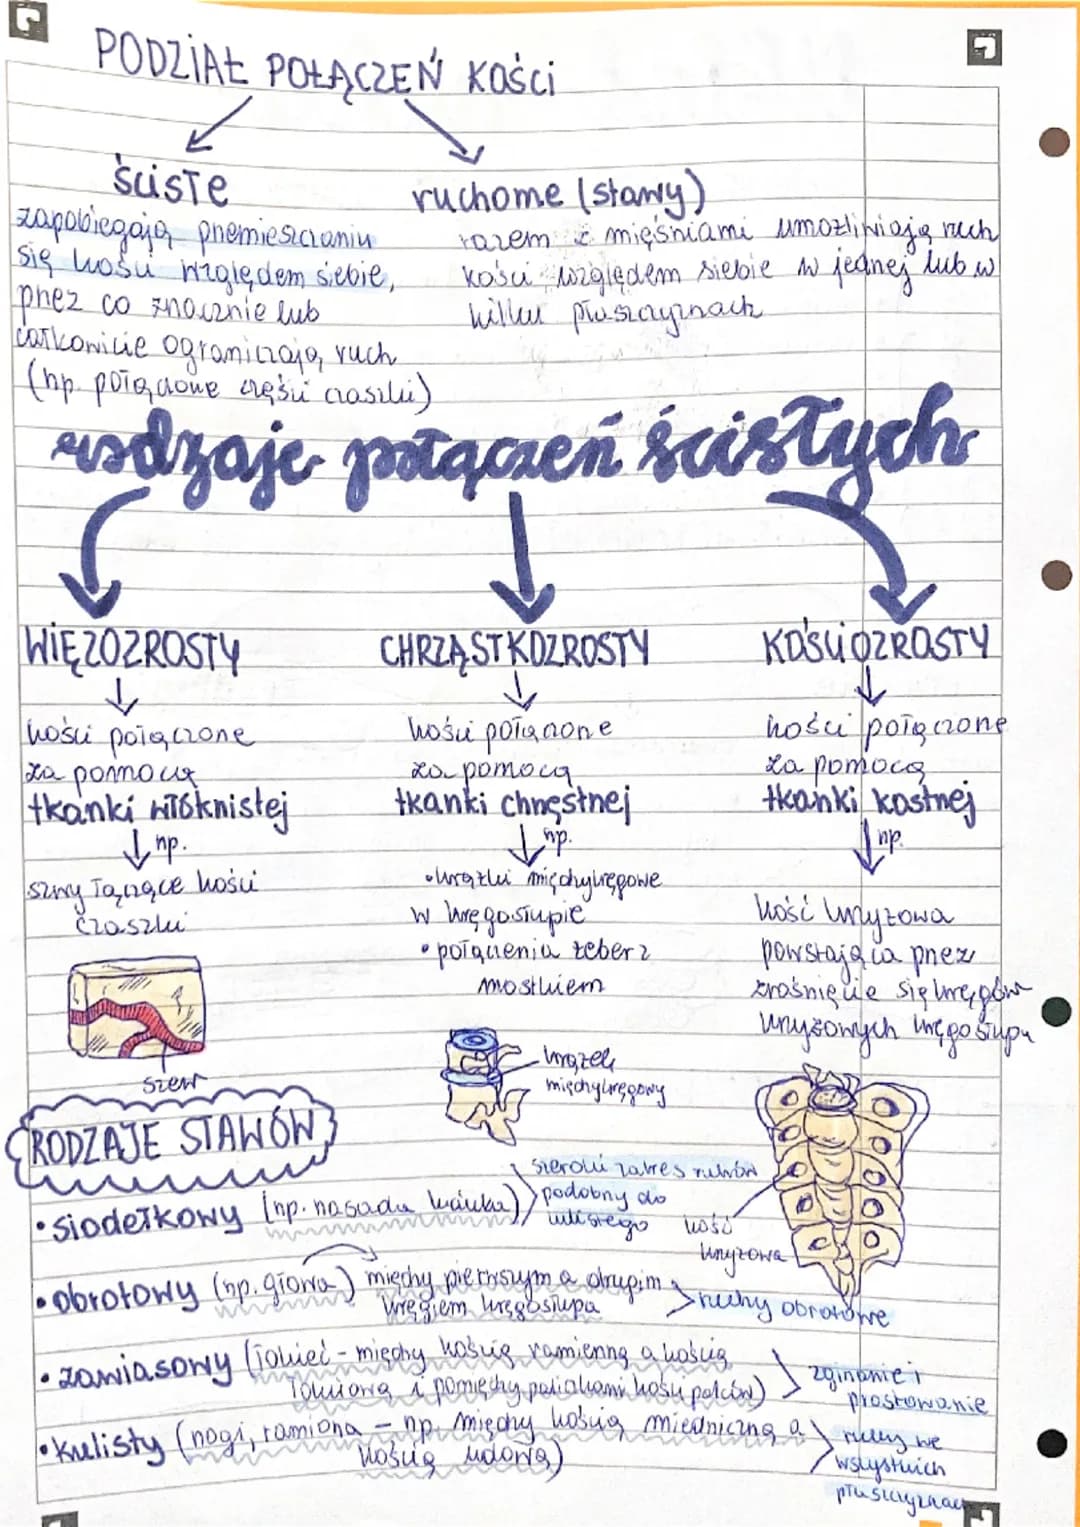 PODZIAŁ POŁĄCZEŃ KOŚCI
ścisłe
zapobiegają przemieszczaniu
się kości względem siebie,
przez co znacznie lub
całkowicie ograniczają ruch
(np. połączone części czaszki)
ruchome (stawy)
razem z mięśniami umożliwiają ruch
kości względem siebie w jednej lub w
kilku płaszczyznach
rodzaje połączeń ścisłych
WIĘZOZROSTY
kości połączone
za pomocą
tkanki włóknistej
np.
szwy łączące kości
czaszki
szew
CHRZĄSTKOZROSTY
kości połączone
za pomocą
tkanki chrzęstnej
np.
• krążki międzykręgowe
w kręgosłupie
• połączenia żeber z
mostkiem
krążek
międzykręgowy
KOŚCIOZROSTY
kości połączone
za pomocą
tkanki kostnej
np.
kość krzyżowa
powstająca przez
zrośnięcie się kręgów
krzyżowych kręgosłupa
kość
krzyżowa
RODZAJE STAWÓW
• siodełkowy (np. nasada kciuka)
szeroki zakres ruchów
podobny do
kulistego
• obrotowy (np. głowa) między pierwszym a drugim
kręgiem kręgosłupa
ruchy obrotowe
• zawiasowy (łokieć - między kością ramienną a kością
łokciową i pomiędzy paliczkami kości palców)
zginanie i
prostowanie
• kulisty (nogi, ramiona - np. między kością miedniczną a
kością udową)
ruchy we
wszystkich
płaszczyznach